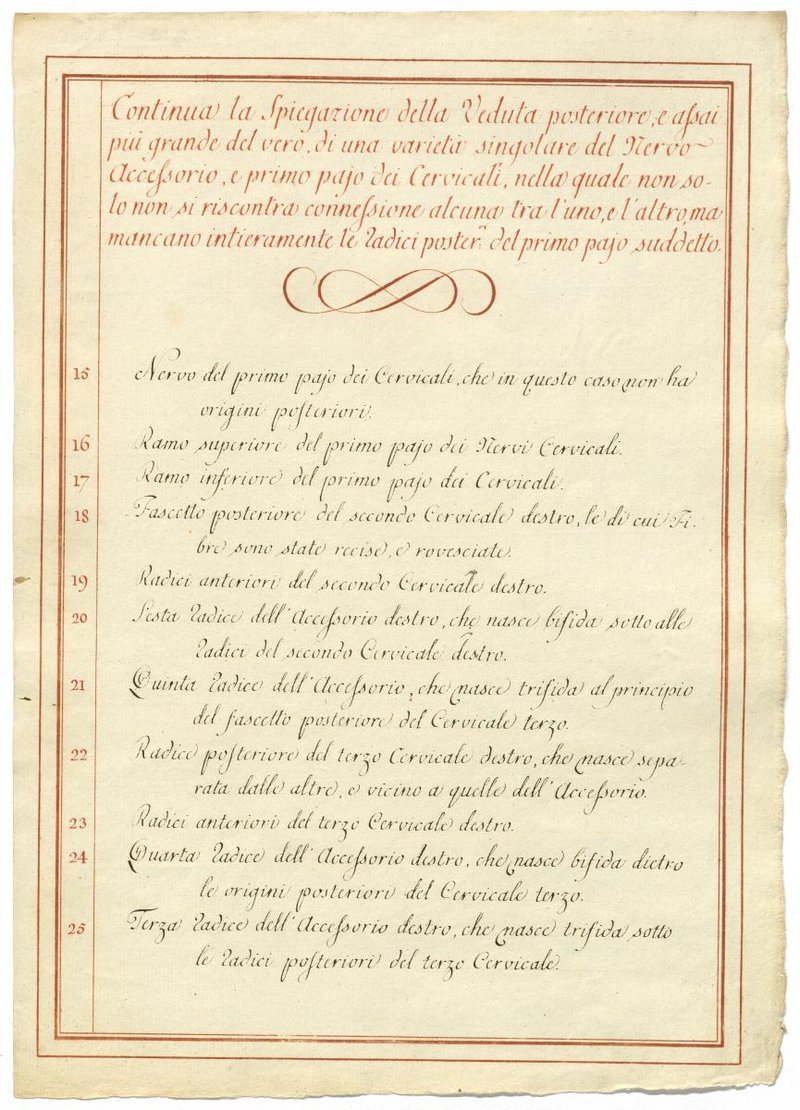 Continua la Spiegazione della Veduta posteriore, e assai
più grande del vero, di una varietà singolare del Nervo
Accessorio, e primo pajo dei Cervicali, nella quale non so-
lo non si riscontra connessione alcuna tra l'uno, e l'altro, ma
mancano intieramente le Radici poster.ri del primo pajo suddetto.
15 Nervo del primo pajo dei Cervicali, che in questo caso non ha
origini posteriori.
16 Ramo superiore del primo pajo dei Nervi Cervicali.
17 Ramo inferiore del primo pajo dei Cervicali.
18 Fascetto posteriore del secondo Cervicale destro, le di cui Fi-
bre sono state recise, e rovesciate.
19 Radici anteriori del secondo Cervicale destro.
20 Sesta Radice dell'Accessorio destro, che nasce bifida sotto alle
Radici del secondo Cervicale destro.
21 Quinta Radice dell'Accessorio, che nasce trifida al principio
del fascetto posteriore del Cervicale terzo.
22 Radice posteriore del terzo Cervicale destro, che nasce sepa-
rata dalle altre, e vicino a quelle dell'Accessorio.
23 Radici anteriori del terzo Cervicale destro.
24 Quarta Radice dell'Accessorio destro, che nasce bifida dietro
le origini posteriori del Cervicale terzo.
25 Terza Radice dell'Accessorio destro, che nasce trifida sotto
le Radici posteriori del terzo Cervicale.